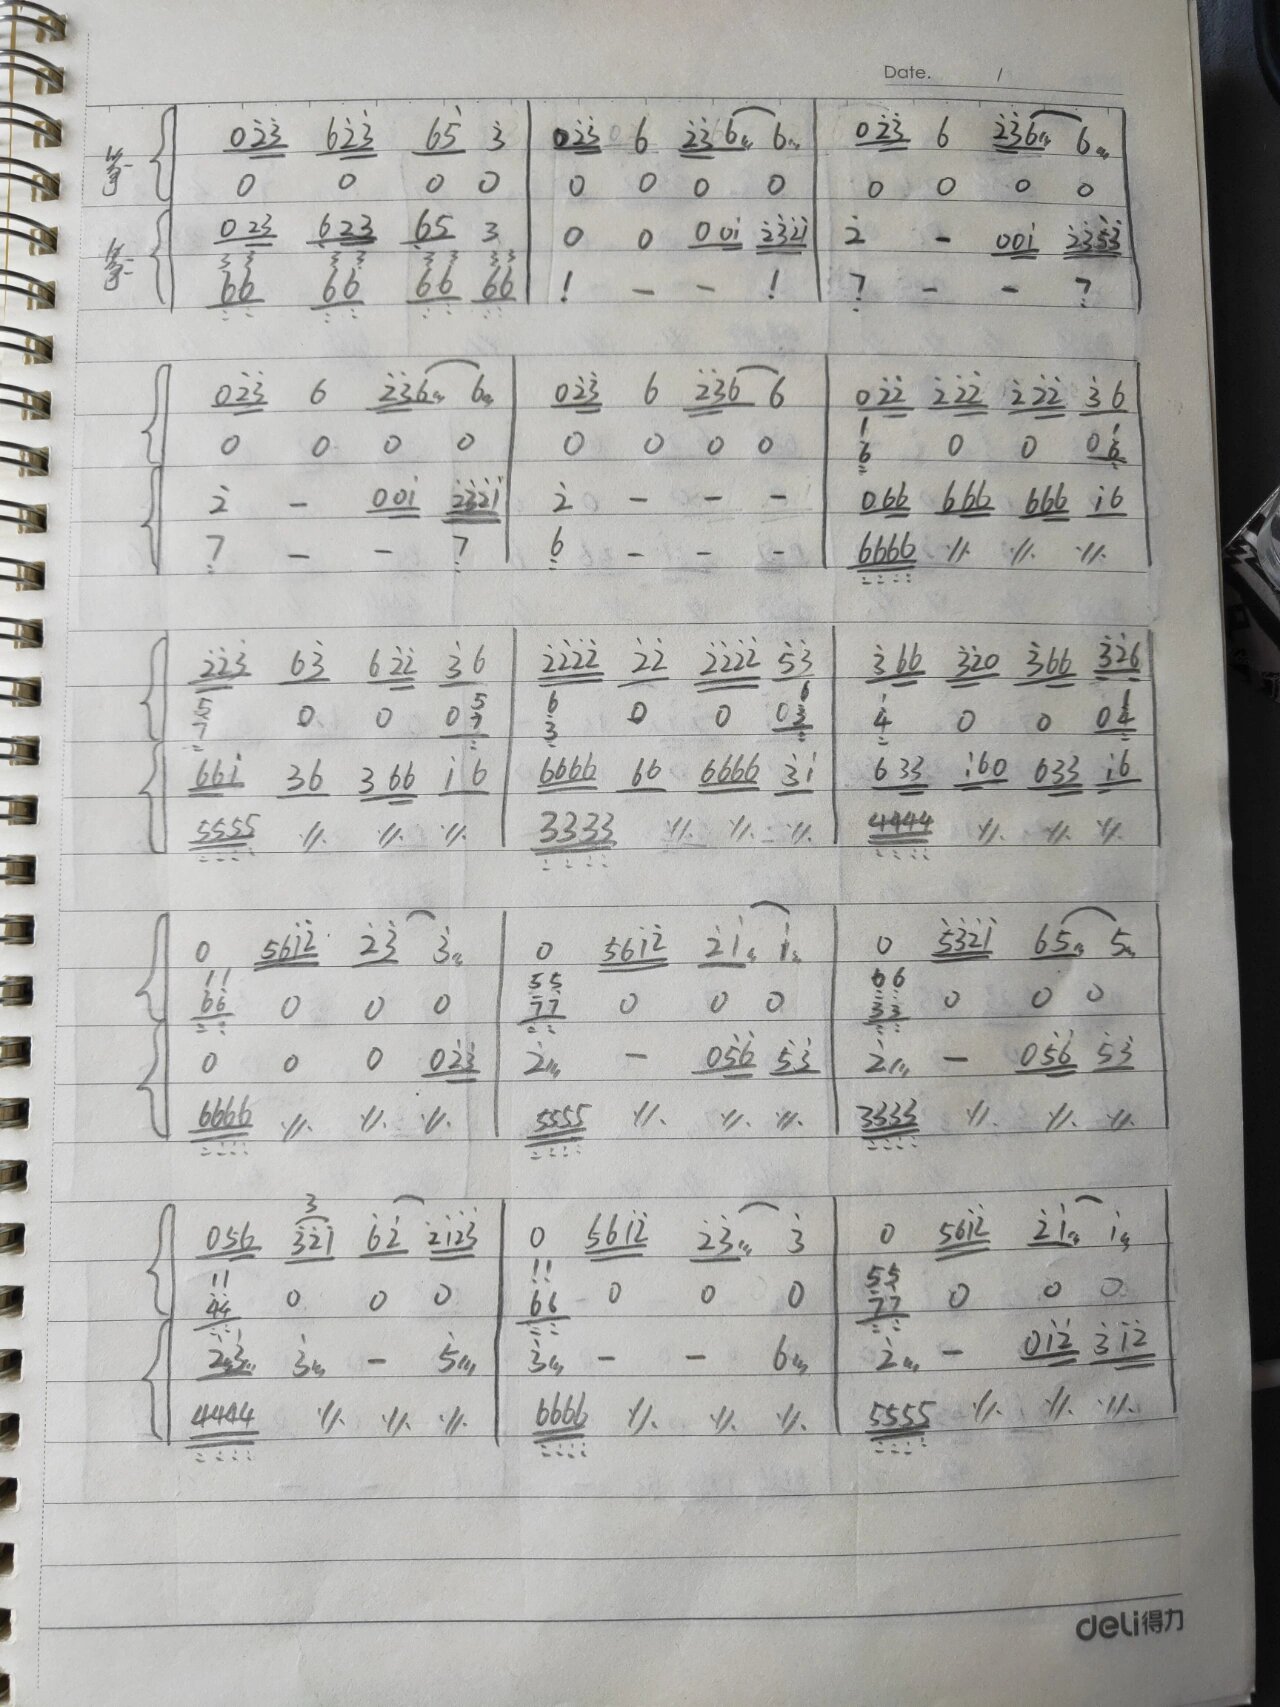 Date. /
筝一 0 2̇3̇ 6 2̇3̇ 6 5̇ 3̇ | 0 2̇3̇ 6 2̇3̇6 6 | 0 2̇3̇ 6 2̇3̇6 6
0 0 0 0 | 0 0 0 0 | 0 0 0 0
筝二 0 23 6 23 65 3 | 0 0 0 0 1̇ 2̇3̇2̇1̇ | 2̇ - 0 0 1̇ 2̇3̇5̇3̇
3 3 3 3 3 3 3 3
66 66 66 66 | 1 - - 1 | 7 - - 7
0 2̇3̇ 6 2̇3̇6 6 | 0 2̇3̇ 6 2̇3̇6 6 | 0 2̇2̇ 2̇2̇2̇ 2̇2̇2̇ 3̇6
0 0 0 0 | 0 0 0 0 | 1/6 0 0 0 1/6
2̇ - 0 0 1̇ 2̇3̇2̇1̇ | 2̇ - - - | 0 66 666 666 1̇6
7 - - 7 | 6 - - - | 6666 〃 〃 〃
2̇2̇3̇ 63̇ 6 2̇2̇ 3̇6 | 2̇2̇2̇2̇ 2̇2̇ 2̇2̇2̇2̇ 5̇3̇ | 3̇66 3̇2̇0 3̇66 3̇2̇6
5/7 0 0 0 5/7 | 6/3 0 0 0 6/3 | 1/4 0 0 0 1/4
661̇ 36 366 1̇6 | 6666 66 6666 3̇1̇ | 633 1̇60 633 1̇6
5555 〃 〃 〃 | 3333 〃 〃 〃 | 4444 〃 〃 〃
0 561̇2̇ 2̇3̇ 3̇ | 0 561̇2̇ 2̇1̇ 1̇ | 0 5̇3̇2̇1̇ 65 5
11/66 0 0 0 | 55/77 0 0 0 | 66/33 0 0 0
0 0 0 0 2̇3̇ | 2̇ - 0 5̇6̇ 5̇3̇ | 2̇ - 0 5̇6̇ 5̇3̇
6666 〃 〃 〃 | 5555 〃 〃 〃 | 3333 〃 〃 〃
3
0 56 3̇2̇1̇ 62̇ 2̇1̇2̇3̇ | 0 561̇2̇ 2̇3̇ 3̇ | 0 561̇2̇ 2̇1̇ 1̇
11/44 0 0 0 | 11/66 0 0 0 | 55/77 0 0 0
2̇3̇ 3̇ - 5̇ | 3̇ - - 6 | 2̇ - 0 1̇2̇ 3̇1̇2̇
4444 〃 〃 〃 | 6666 〃 〃 〃 | 5555 〃 〃 〃
deli得力